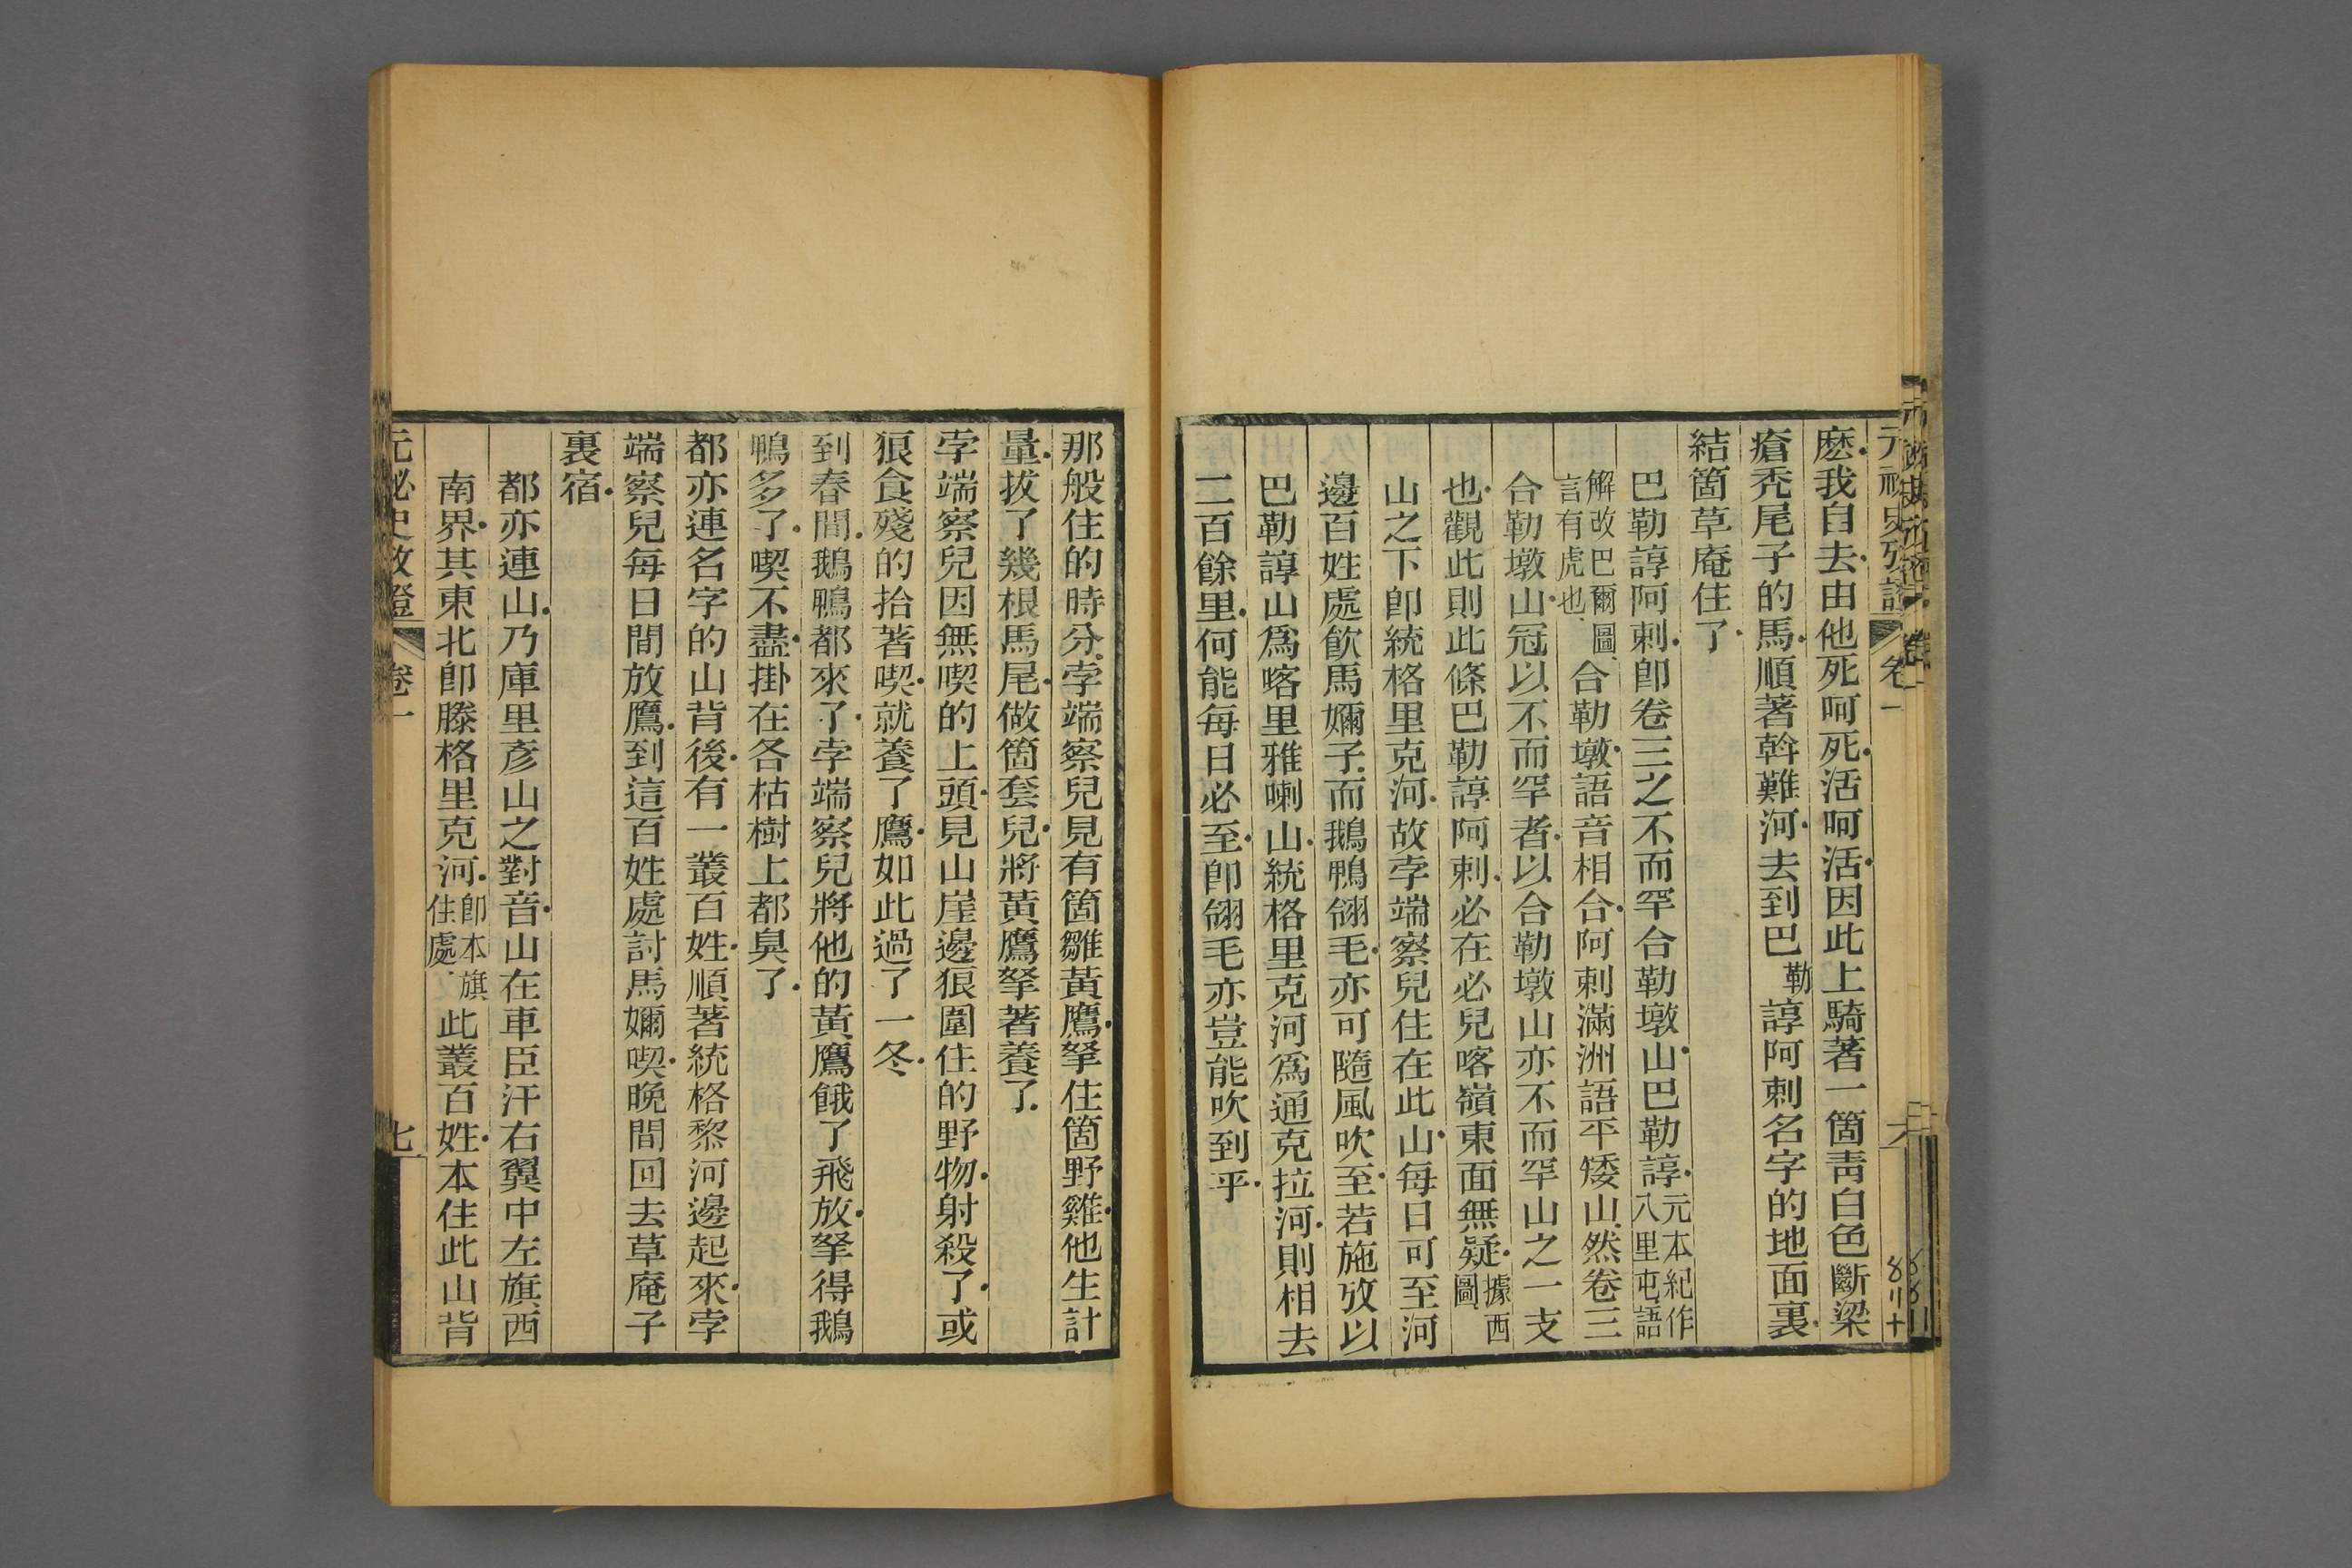 元祕史攷證 卷一 六
麽我自去由他死呵死活呵活因此上騎著一箇靑白色斷梁
瘡禿尾子的馬順著斡難河去到巴勒諄阿剌名字的地面裏
結箇草庵住了
巴勒諄阿剌卽卷三之不而罕合勒墩山巴勒諄元本紀作八里屯語
解改巴爾圖言有虎也合勒墩語音相合阿剌滿洲語平矮山然卷三
合勒墩山冠以不而罕者以合勒墩山亦不而罕山之一支
也觀此則此條巴勒諄阿剌必在必兒喀嶺東面無疑據西圖
山之下卽統格里克河故孛端察兒住在此山每日可至河
邊百姓處飮馬嬭子而鵝鴨翎毛亦可隨風吹至若施攷以
巴勒諄山爲喀里雅喇山統格里克河爲通克拉河則相去
二百餘里何能每日必至卽翎毛亦豈能吹到乎
那般住的時分孛端察兒見有箇雛黃鷹拏住箇野雞他生計
量拔了幾根馬尾做箇套兒將黃鷹拏著養了
孛端察兒因無喫的上頭見山崖邊狼圍住的野物射殺了或
狼食殘的拾著喫就養了鷹如此過了一冬
到春間鵝鴨都來了孛端察兒將他的黃鷹餓了飛放拏得鵝
鴨多了喫不盡掛在各枯樹上都臭了
都亦連名字的山背後有一叢百姓順著統格黎河邊起來孛
端察兒每日間放鷹到這百姓處討馬嬭喫晚間回去草庵子
裏宿
都亦連山乃庫里彥山之對音山在車臣汗右翼中左旗西
南界其東北卽滕格里克河卽本旗住處此叢百姓本住此山背
元祕史攷證 卷一 七